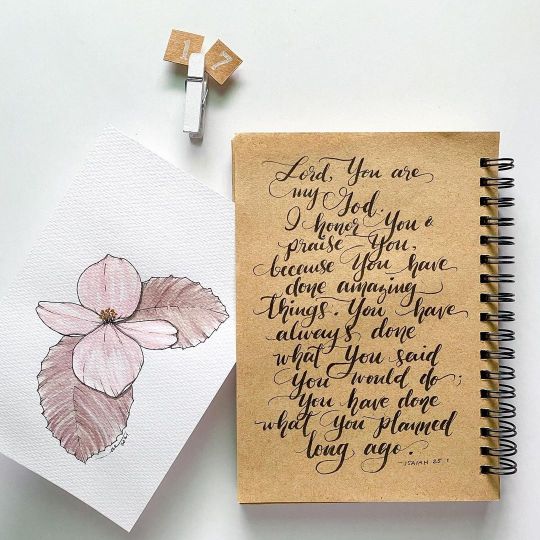 17
Lord, You are
my God.
I honor You &
praise You,
because You have
done amazing
things. You have
always done
what You said
You would do;
You have done
what You planned
long ago.
—ISAIAH 25:1